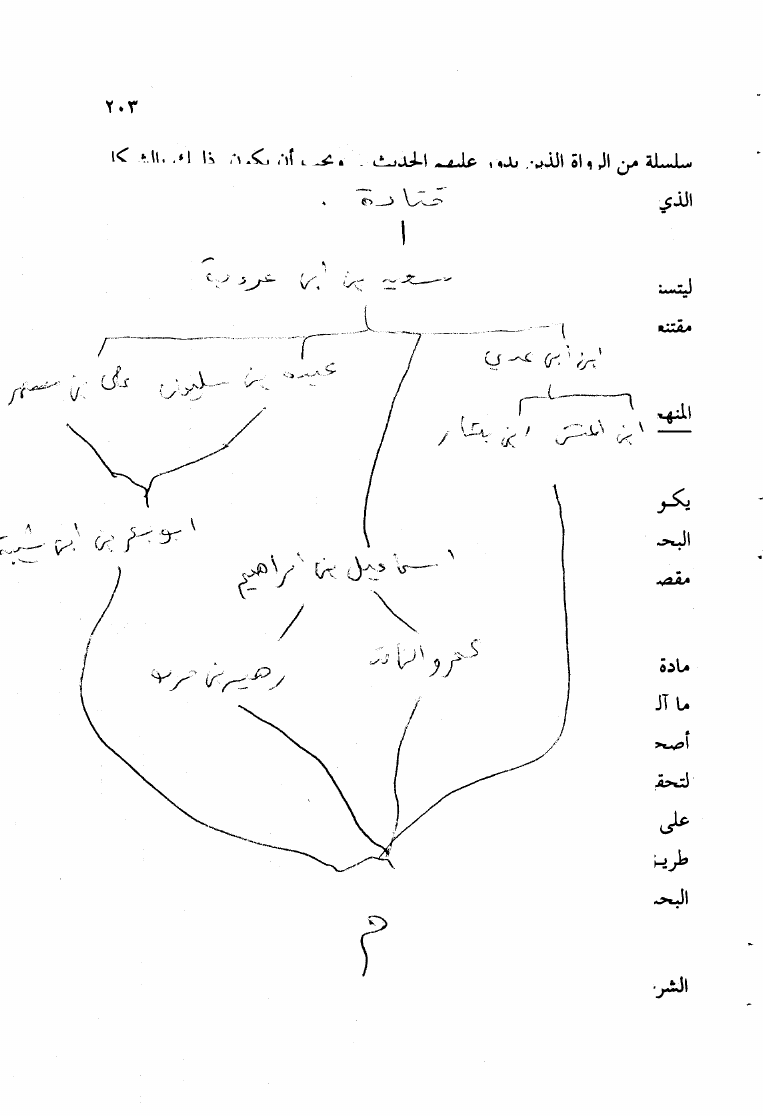 ٢٠٣
سلسلة من الرواة الذين يدور عليهم الحديث . ويجب أن يكون
الذي
قتادة .
سعيد بن أبي عروبة
ليتسنـ
مقتنع
ابن أبي عدي
عبده بن سليمان علي بن مسهر
المنهـ
ابن المثنى ابن بشار
يكو
ابو بكر بن ابي شيبة
البحـ
اسماعيل بن ابراهيم
مقصـ
عمرو الناقد
زهير بن حرب
مادة
ما آل
أصحـ
لتحقـ
على
طريـ
البحـ
م
الشر